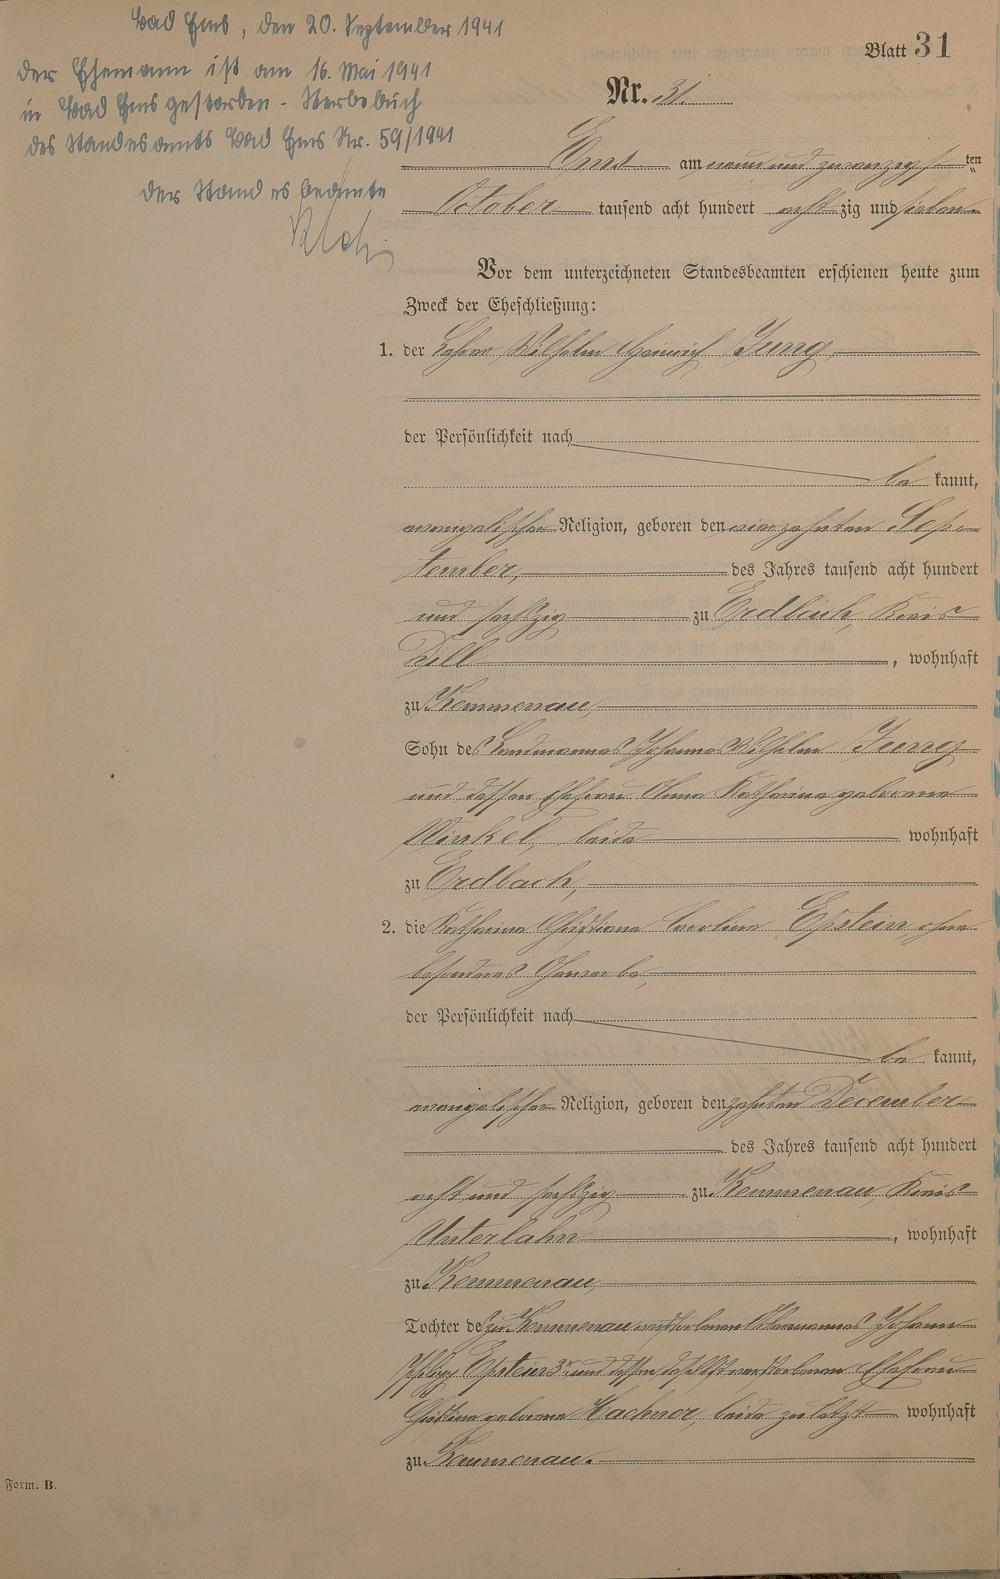 Bad Ems, den 20. September 1941
Der Ehemann ist am 16. Mai 1941
in Bad Ems gestorben - Sterbebuch
des Standesamts Bad Ems Nr. 59/1941
Der Standesbeamte
Blatt 31
Nr. 31.
Ems am neun und zwanzigsten
October tausend acht hundert acht zig und sieben.
Vor dem unterzeichneten Standesbeamten erschienen heute zum
Zweck der Eheschließung:
1. der Lehrer Wilhelm Heinrich Jung,
der Persönlichkeit nach
be kannt,
evangelischer Religion, geboren den vierzehnten Sep-
tember, des Jahres tausend acht hundert
und sechszig zu Erdbach, Kreis
Dill, wohnhaft
zu Kemmenau,
Sohn des Landmannes Johannes Wilhelm Jung
und dessen Ehefrau Anna Katharina geborene
Winkel, beide wohnhaft
zu Erdbach,
2. die Katharina Christiane Caroline Epstein ohne
besonderes Gewerbe,
der Persönlichkeit nach
be kannt,
evangelischer Religion, geboren den zehnten December
des Jahres tausend acht hundert
acht und sechszig zu Kemmenau, Kreis
Unterlahn, wohnhaft
zu Kemmenau,
Tochter des zu Kemmenau verstorbenen Johann
Philipp Epstein 3r und dessen daselbst verstorbenen Ehefrau
Christine geborene Hachner, beide zuletzt wohnhaft
zu Kemmenau.
Form. B.